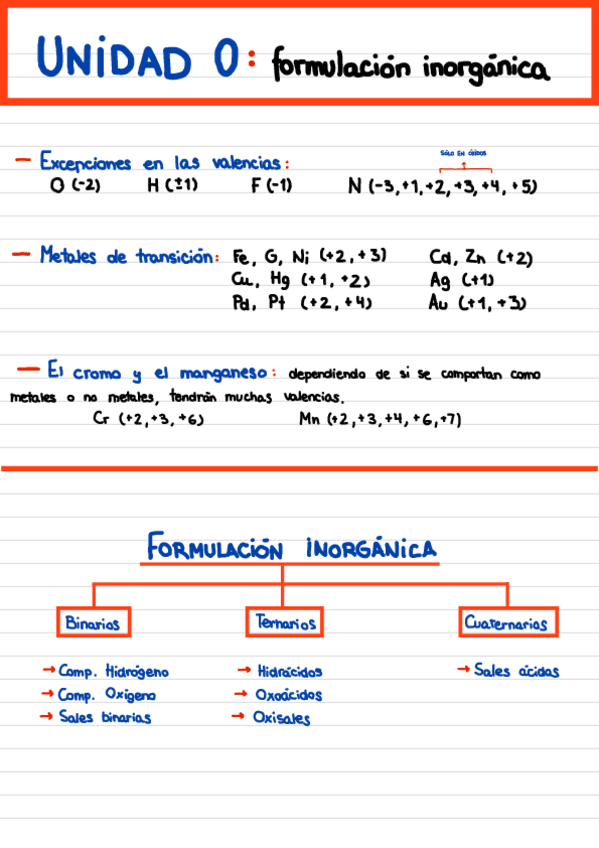 UNIDAD 0: formulación inorgánica
- Excepciones en las valencias:
SÓLO EN ÓXIDOS
O (-2) H (±1) F (-1) N (-3,+1,+2,+3,+4,+5)
- Metales de transición: Fe, G, Ni (+2,+3) Cd, Zn (+2)
Cu, Hg (+1,+2) Ag (+1)
Pd, Pt (+2,+4) Au (+1,+3)
- El cromo y el manganeso: dependiendo de si se comportan como
metales o no metales, tendrán muchas valencias.
Cr (+2,+3,+6) Mn (+2,+3,+4,+6,+7)
FORMULACIÓN INORGÁNICA
Binarios Ternarios Cuaternarios
→ Comp. Hidrógeno → Hidrácidos → Sales ácidas
→ Comp. Oxígeno → Oxoácidos
→ Sales binarias → Oxisales